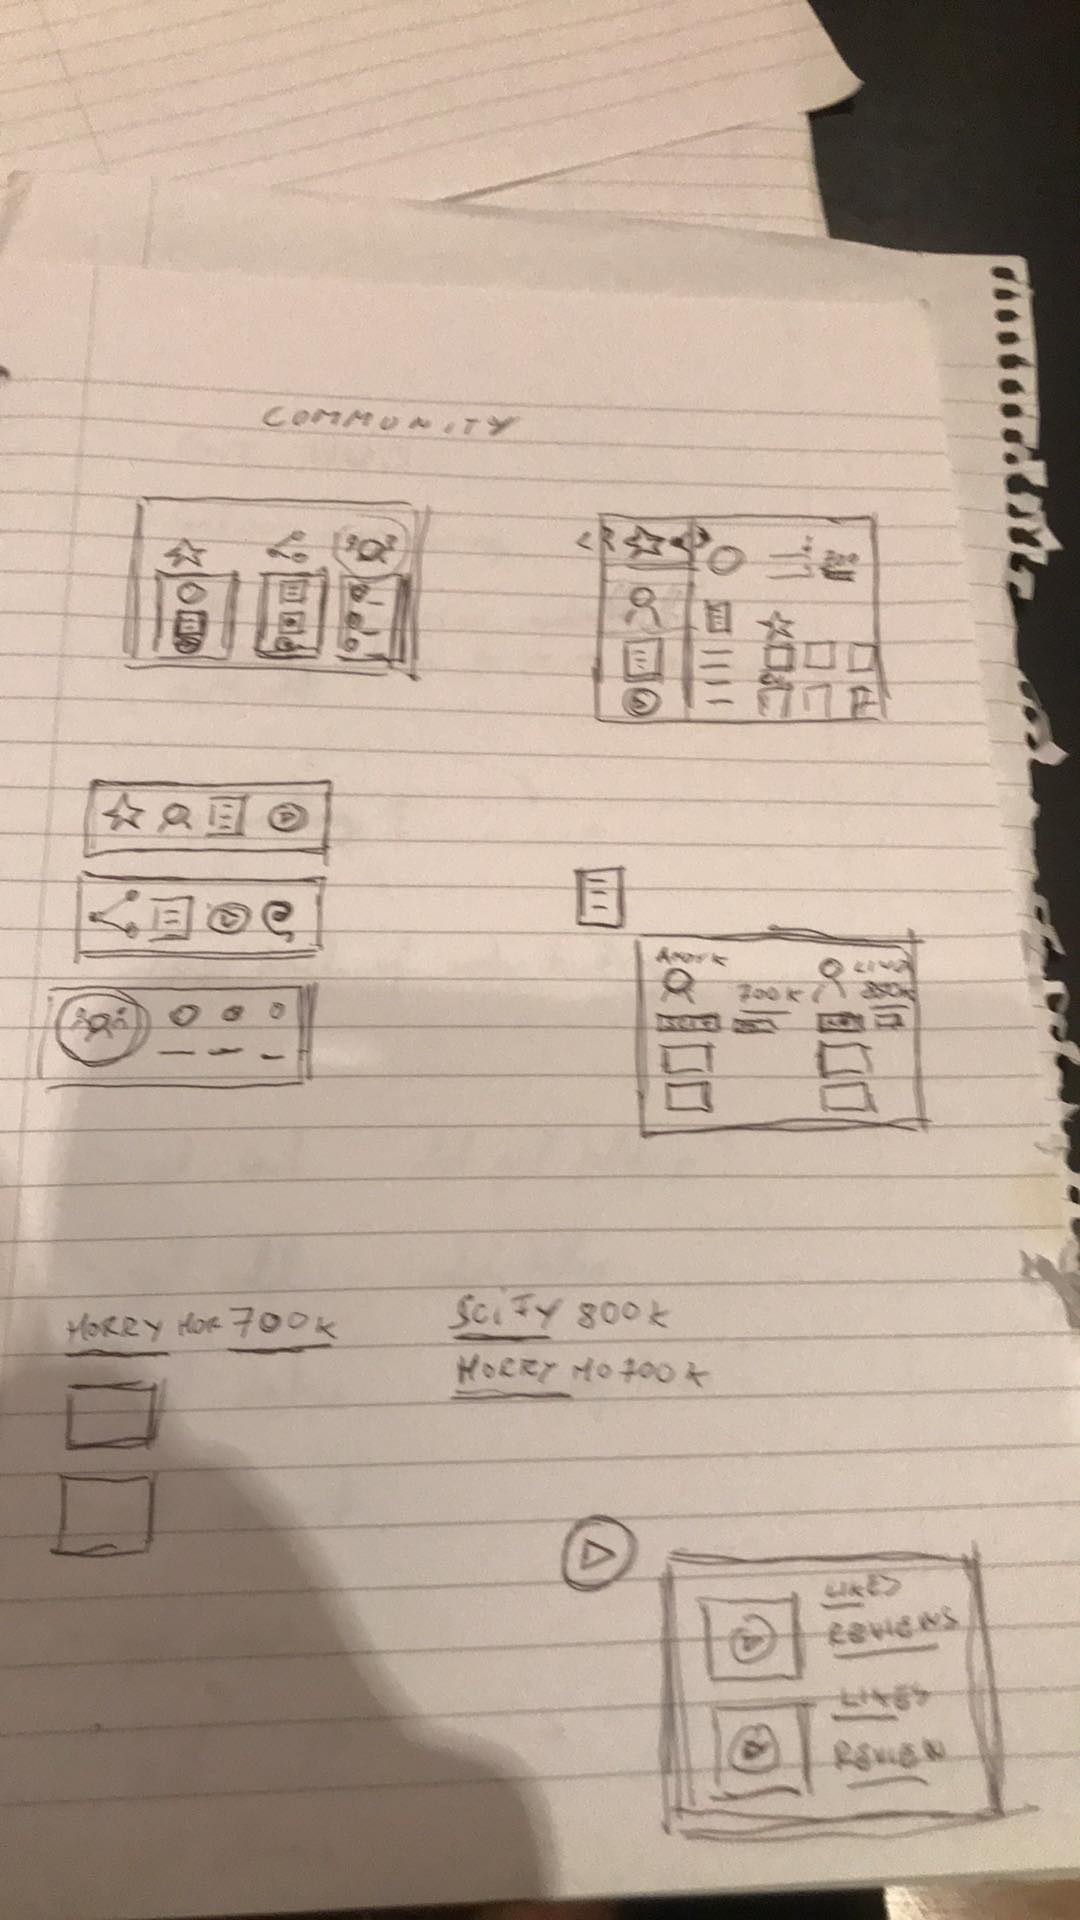 COMMUNITY
700K
HORRY HOR 700K
SCIFY 800K
HORRY HO 700K
LIKES
REVIEWS
LIKES
REVIEW